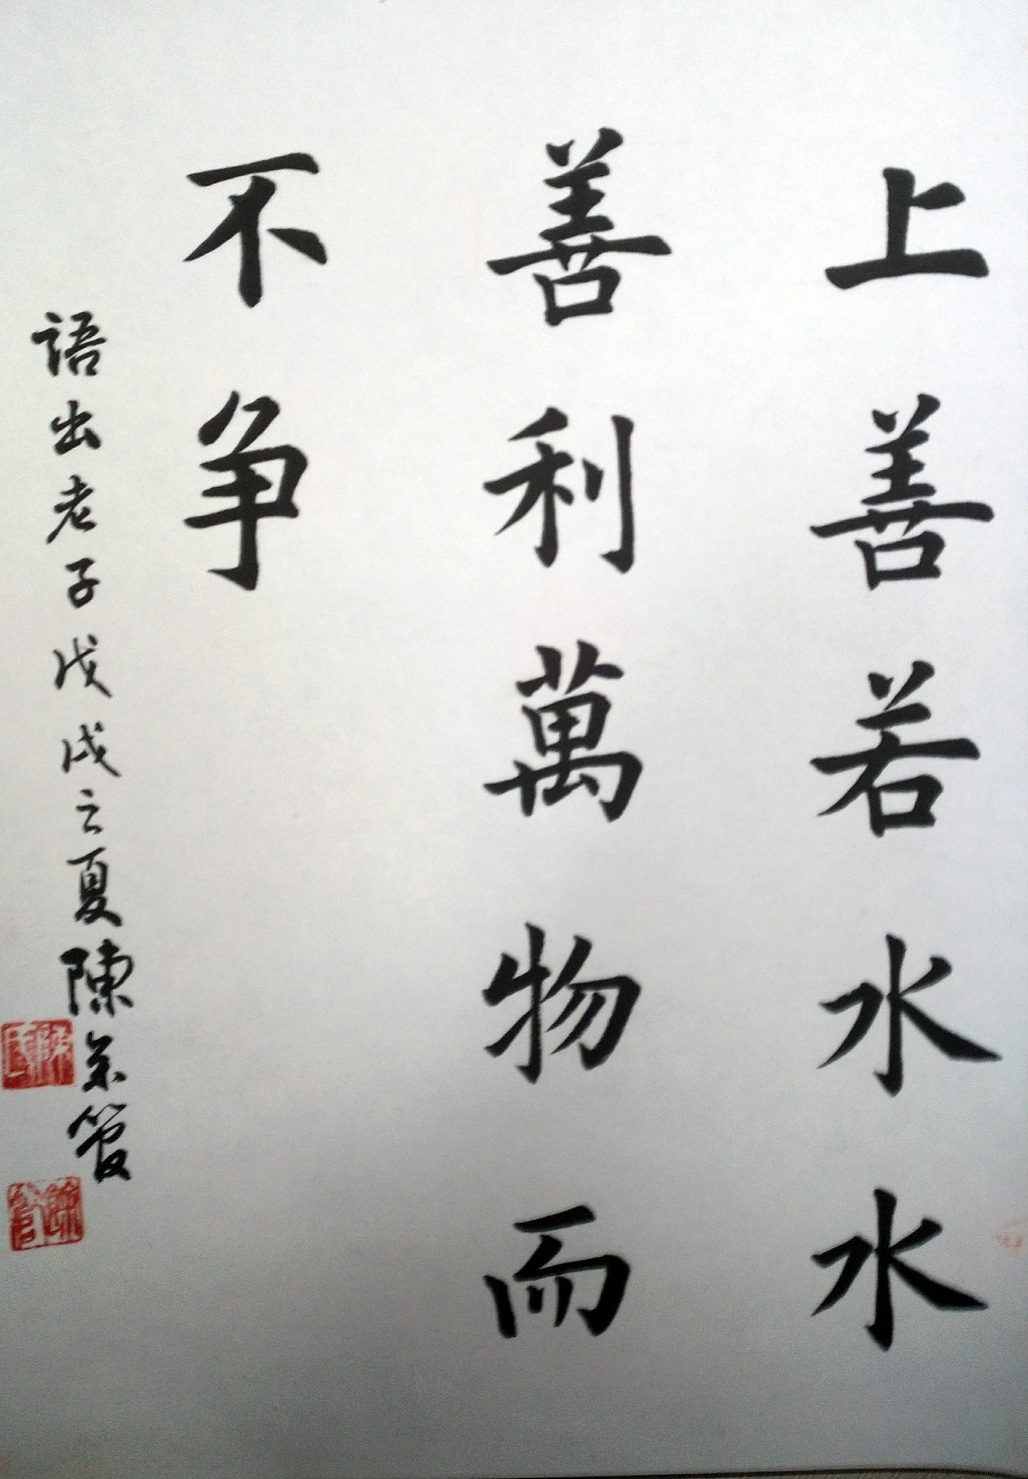 上善若水水
善利萬物而
不争
語出老子戊戌之夏陳
陳氏